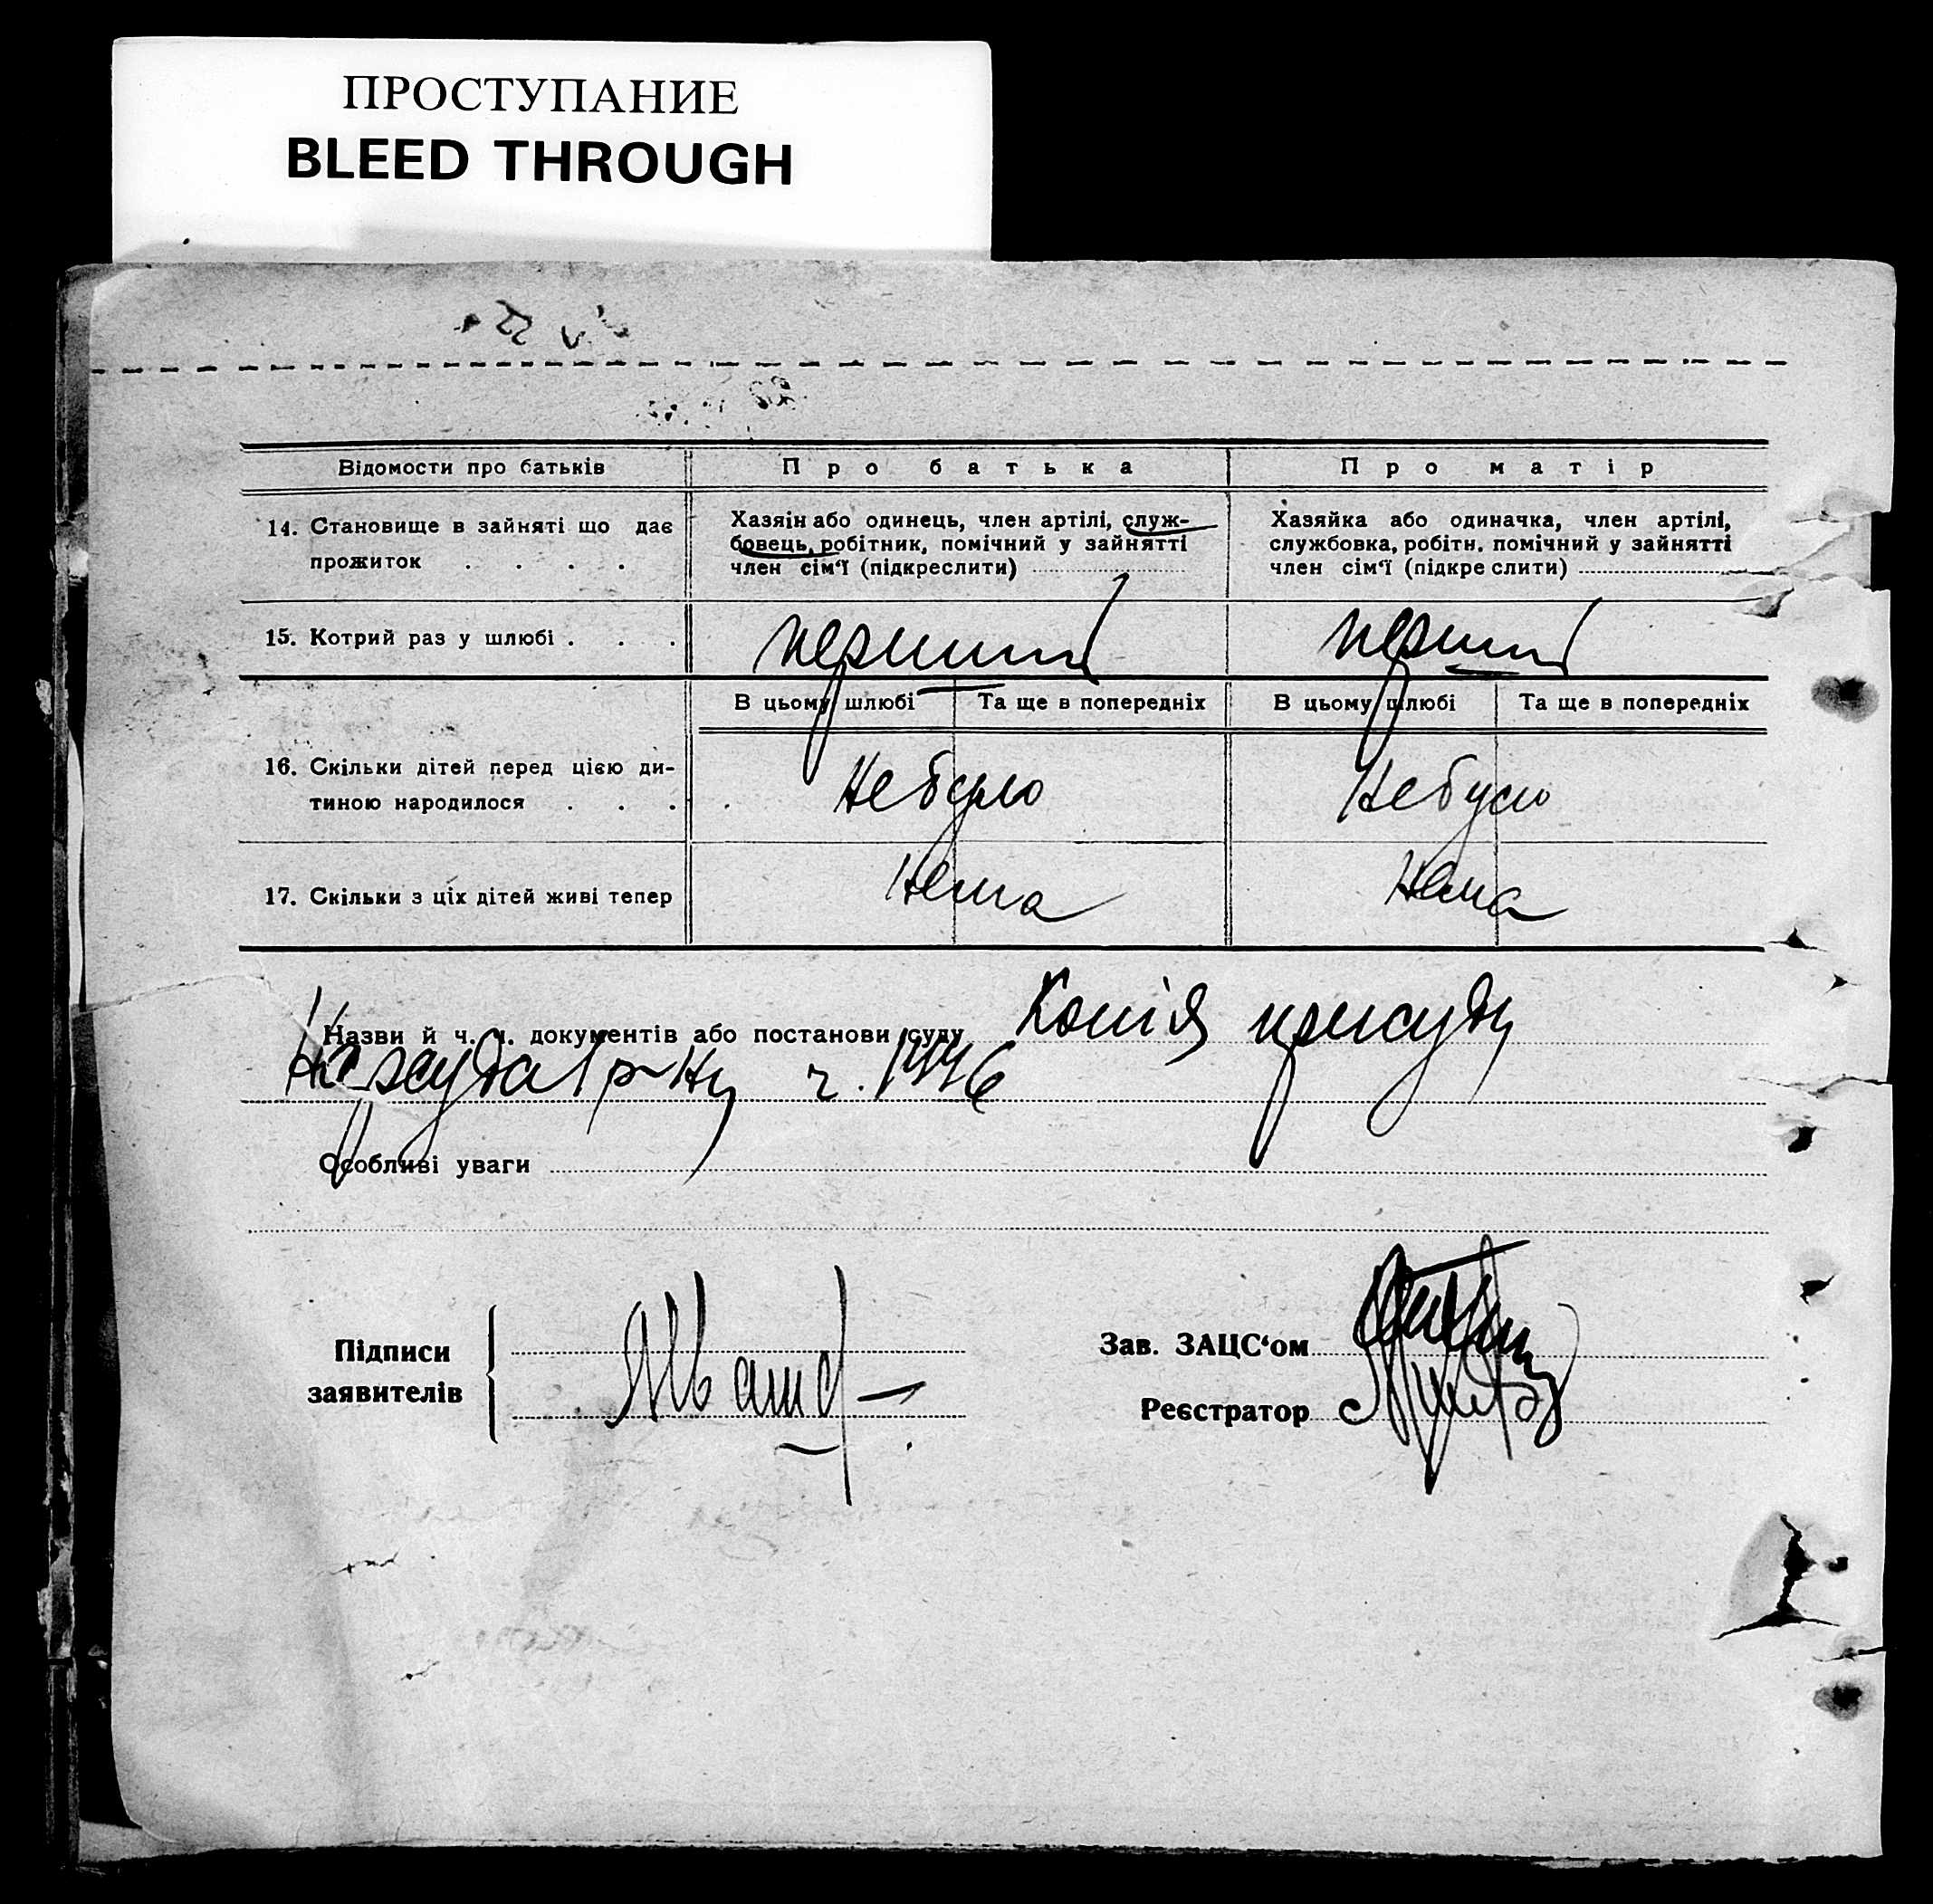 ПРОСТУПАНИЕ
BLEED THROUGH
Відомости про батьків
Про батька
Про матір
14. Становище в зайняті що дає
прожиток . . . .
Хазяїн або одинець, член артілі, служ-
бовець, робітник, помічний у зайнятті
член сім'ї (підкреслити)
Хазяйка або одиначка, член артілі,
службовка, робітн. помічний у зайнятті
член сім'ї (підкреслити)
15. Котрий раз у шлюбі . . .
перший
перший
В цьому шлюбі
Та ще в попередніх
В цьому шлюбі
Та ще в попередніх
16. Скільки дітей перед цією ди-
тиною народилося . . .
Небуло
Небуло
17. Скільки з ціх дітей живі тепер
Нема
Нема
Назви й ч. ч. документів або постанови суду Копія присуду
Нарсуда 1 р-ну ч. 1446
Особливі уваги
Підписи
заявителів
Зав. ЗАЦС'ом
Реєстратор